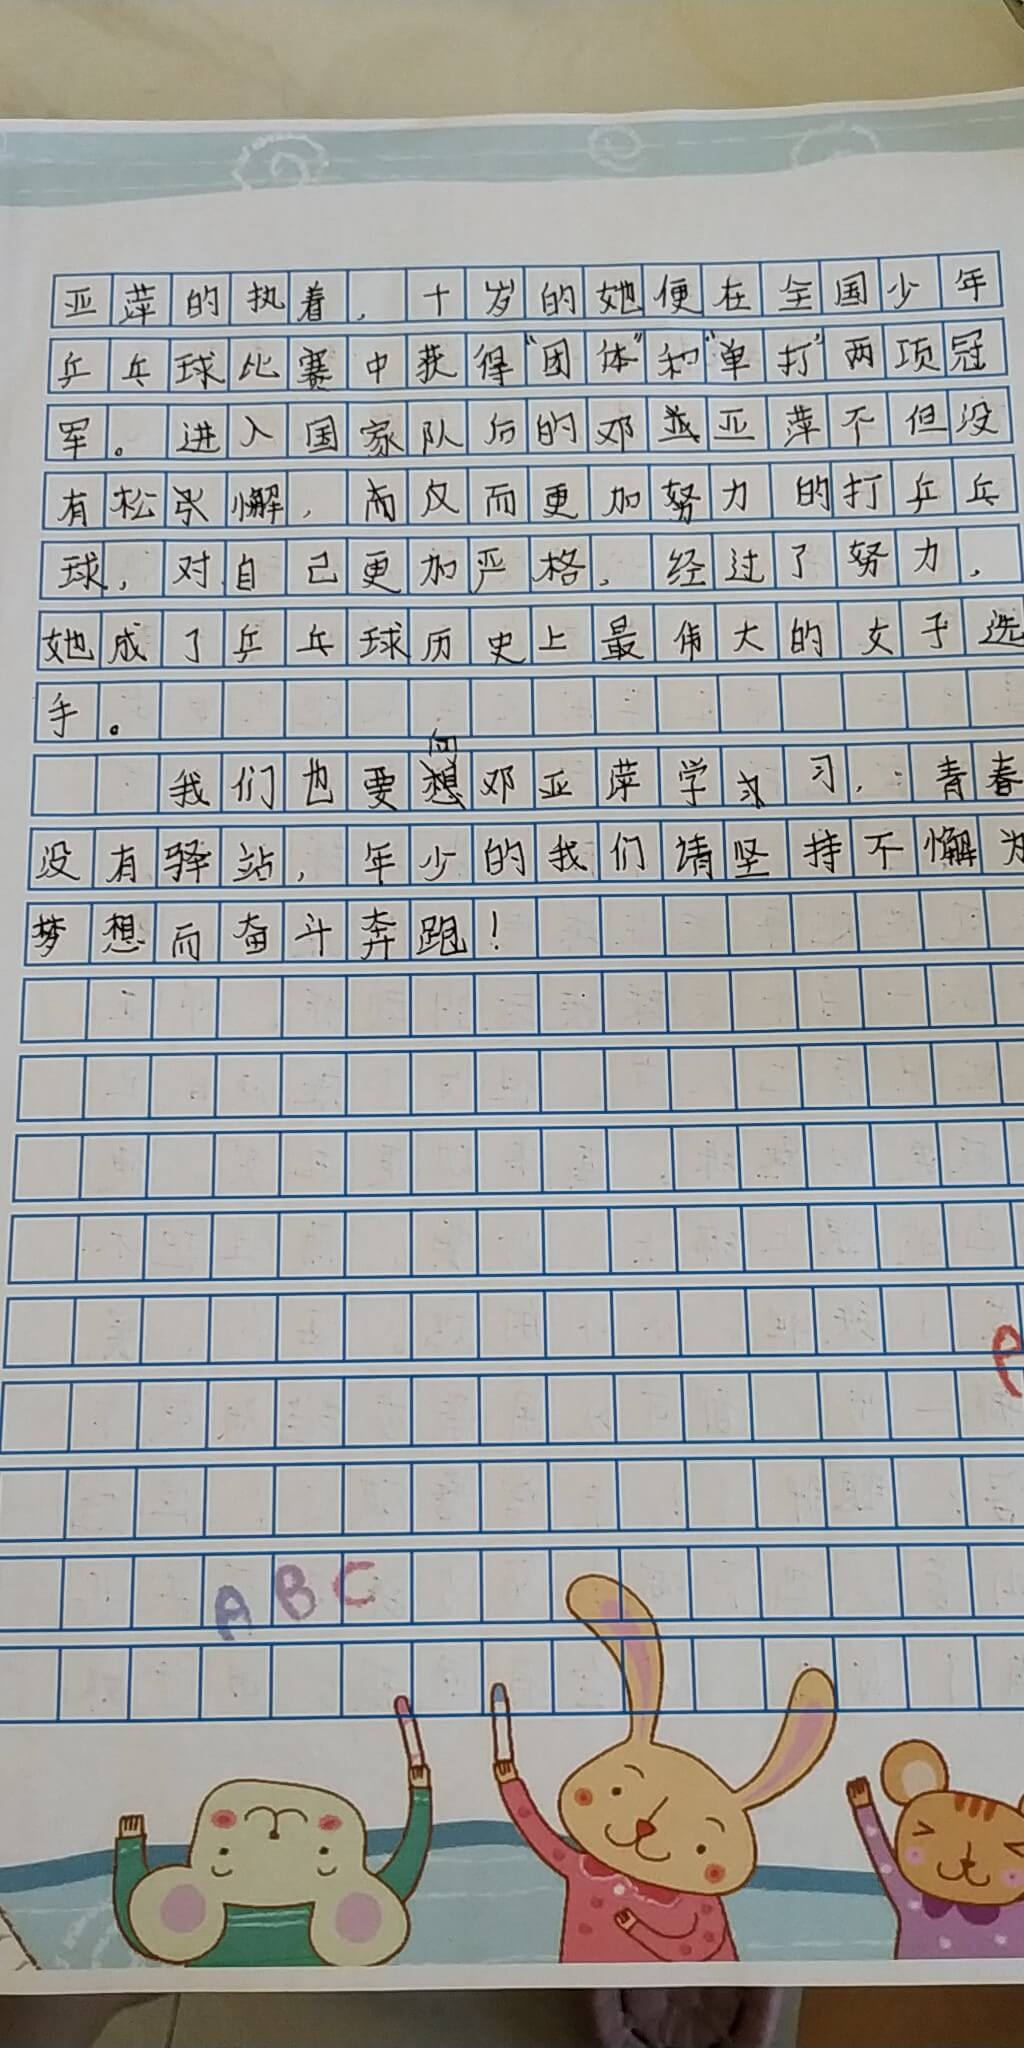 亚萍的执着，十岁的她便在全国少年
乒乓球比赛中获得“团体”和“单打”两项冠
军。进入国家队后的邓亚萍不但没
有松懈，反而更加努力的打乒乓
球，对自己更加严格，经过了努力，
她成了乒乓球历史上最伟大的女子选
手。
我们也要向邓亚萍学习，青春
没有驿站，年少的我们请坚持不懈为
梦想而奋斗奔跑！
e
ABC